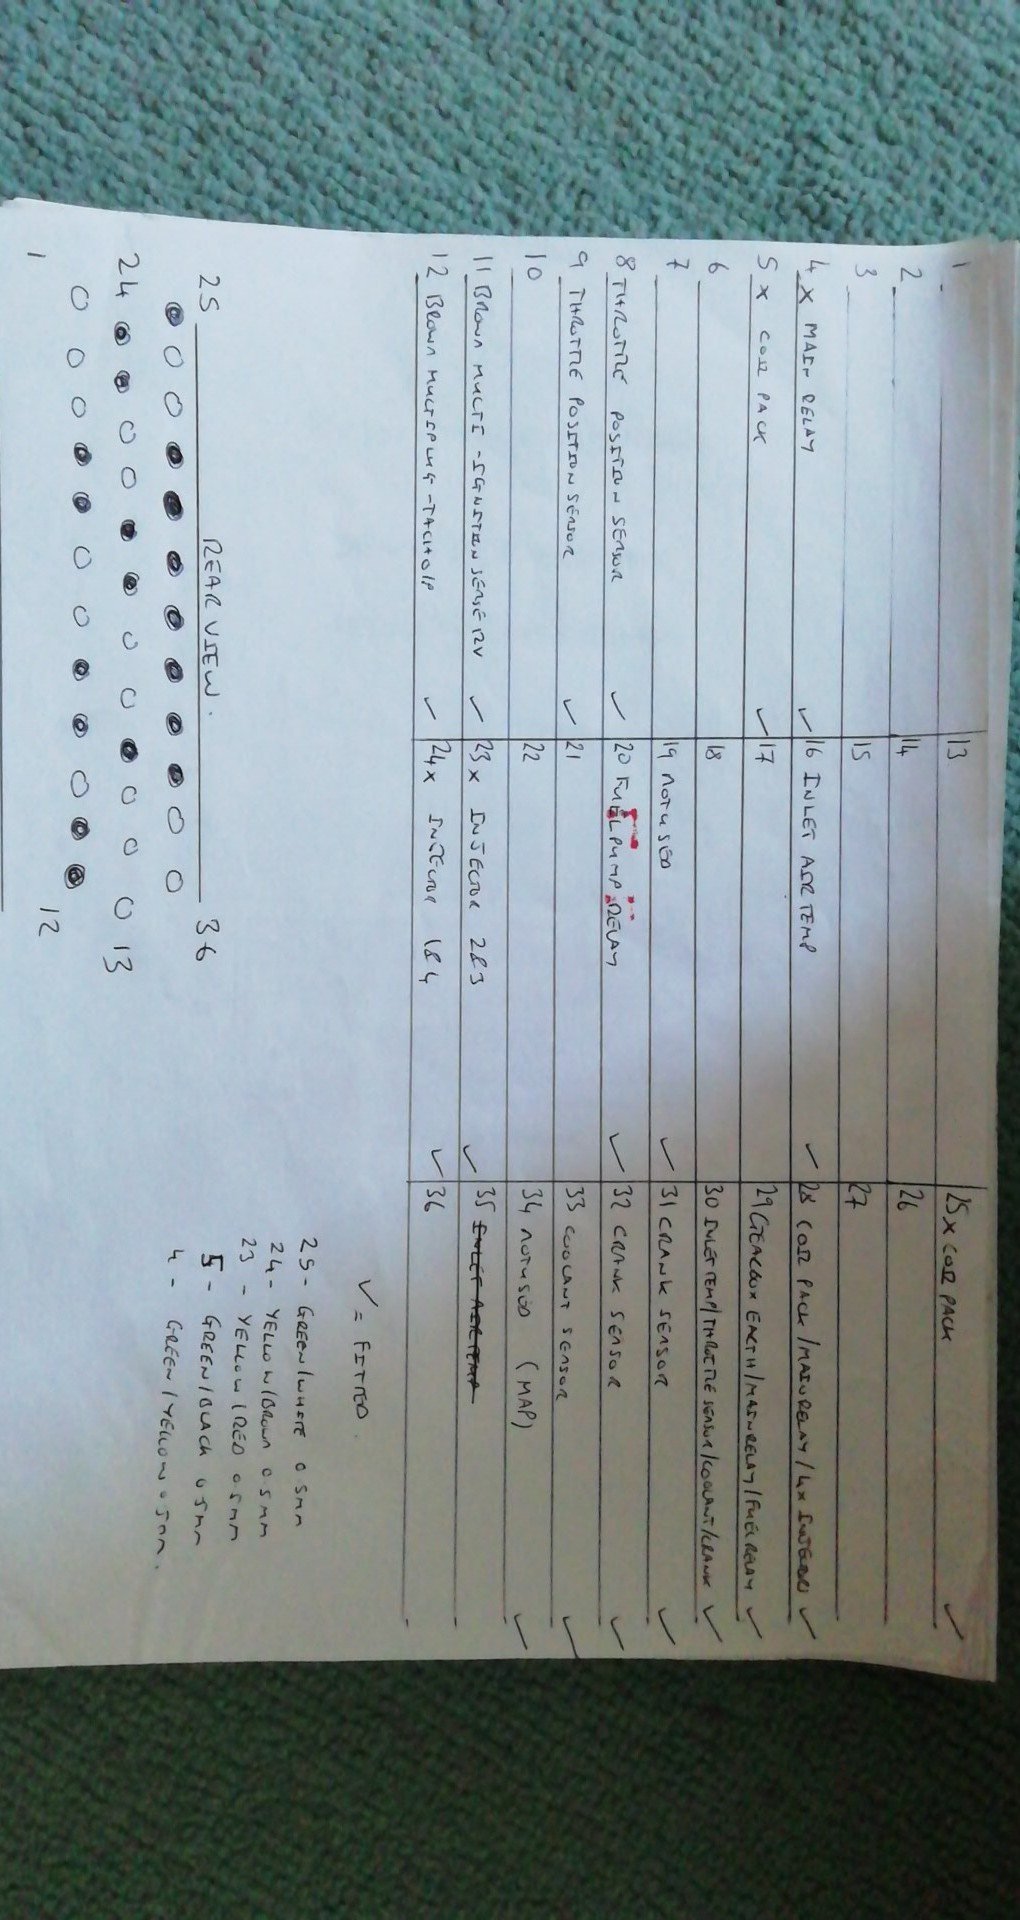 1 13 25 X COIL PACK ✓
2 14 26
3 15 27
4 X MAIN RELAY ✓ 16 INLET AIR TEMP ✓ 28 COIL PACK / MAIN RELAY / 4X INJECTORS ✓
5 X COIL PACK ✓ 17 29 GEARBOX EARTH / MAIN RELAY / FUEL RELAY ✓
6 18 30 INLET TEMP / THROTTLE SENSOR / COOLANT / CRANK ✓
7 19 NOT USED ✓ 31 CRANK SENSOR ✓
8 THROTTLE POSITION SENSOR ✓ 20 FUEL PUMP RELAY ✓ 32 CRANK SENSOR ✓
9 THROTTLE POSITION SENSOR ✓ 21 33 COOLANT SENSOR ✓
10 22 34 NOT USED (MAP) ✓
11 BROWN MULTI - IGNITION SENSE 12V ✓ 23 X INJECTOR 2&3 ✓ 35 INLET AIR TEMP
12 BROWN MULTIPLUG - TACHO O/P ✓ 24 X INJECTOR 1&4 ✓ 36
✓ = FITTED
25 REAR VIEW. 36
24 13
1 12
25 - GREEN/WHITE 0.5MM
24 - YELLOW/BROWN 0.5MM
23 - YELLOW/RED 0.5MM
5 - GREEN/BLACK 0.5MM
4 - GREEN/YELLOW 0.5MM.